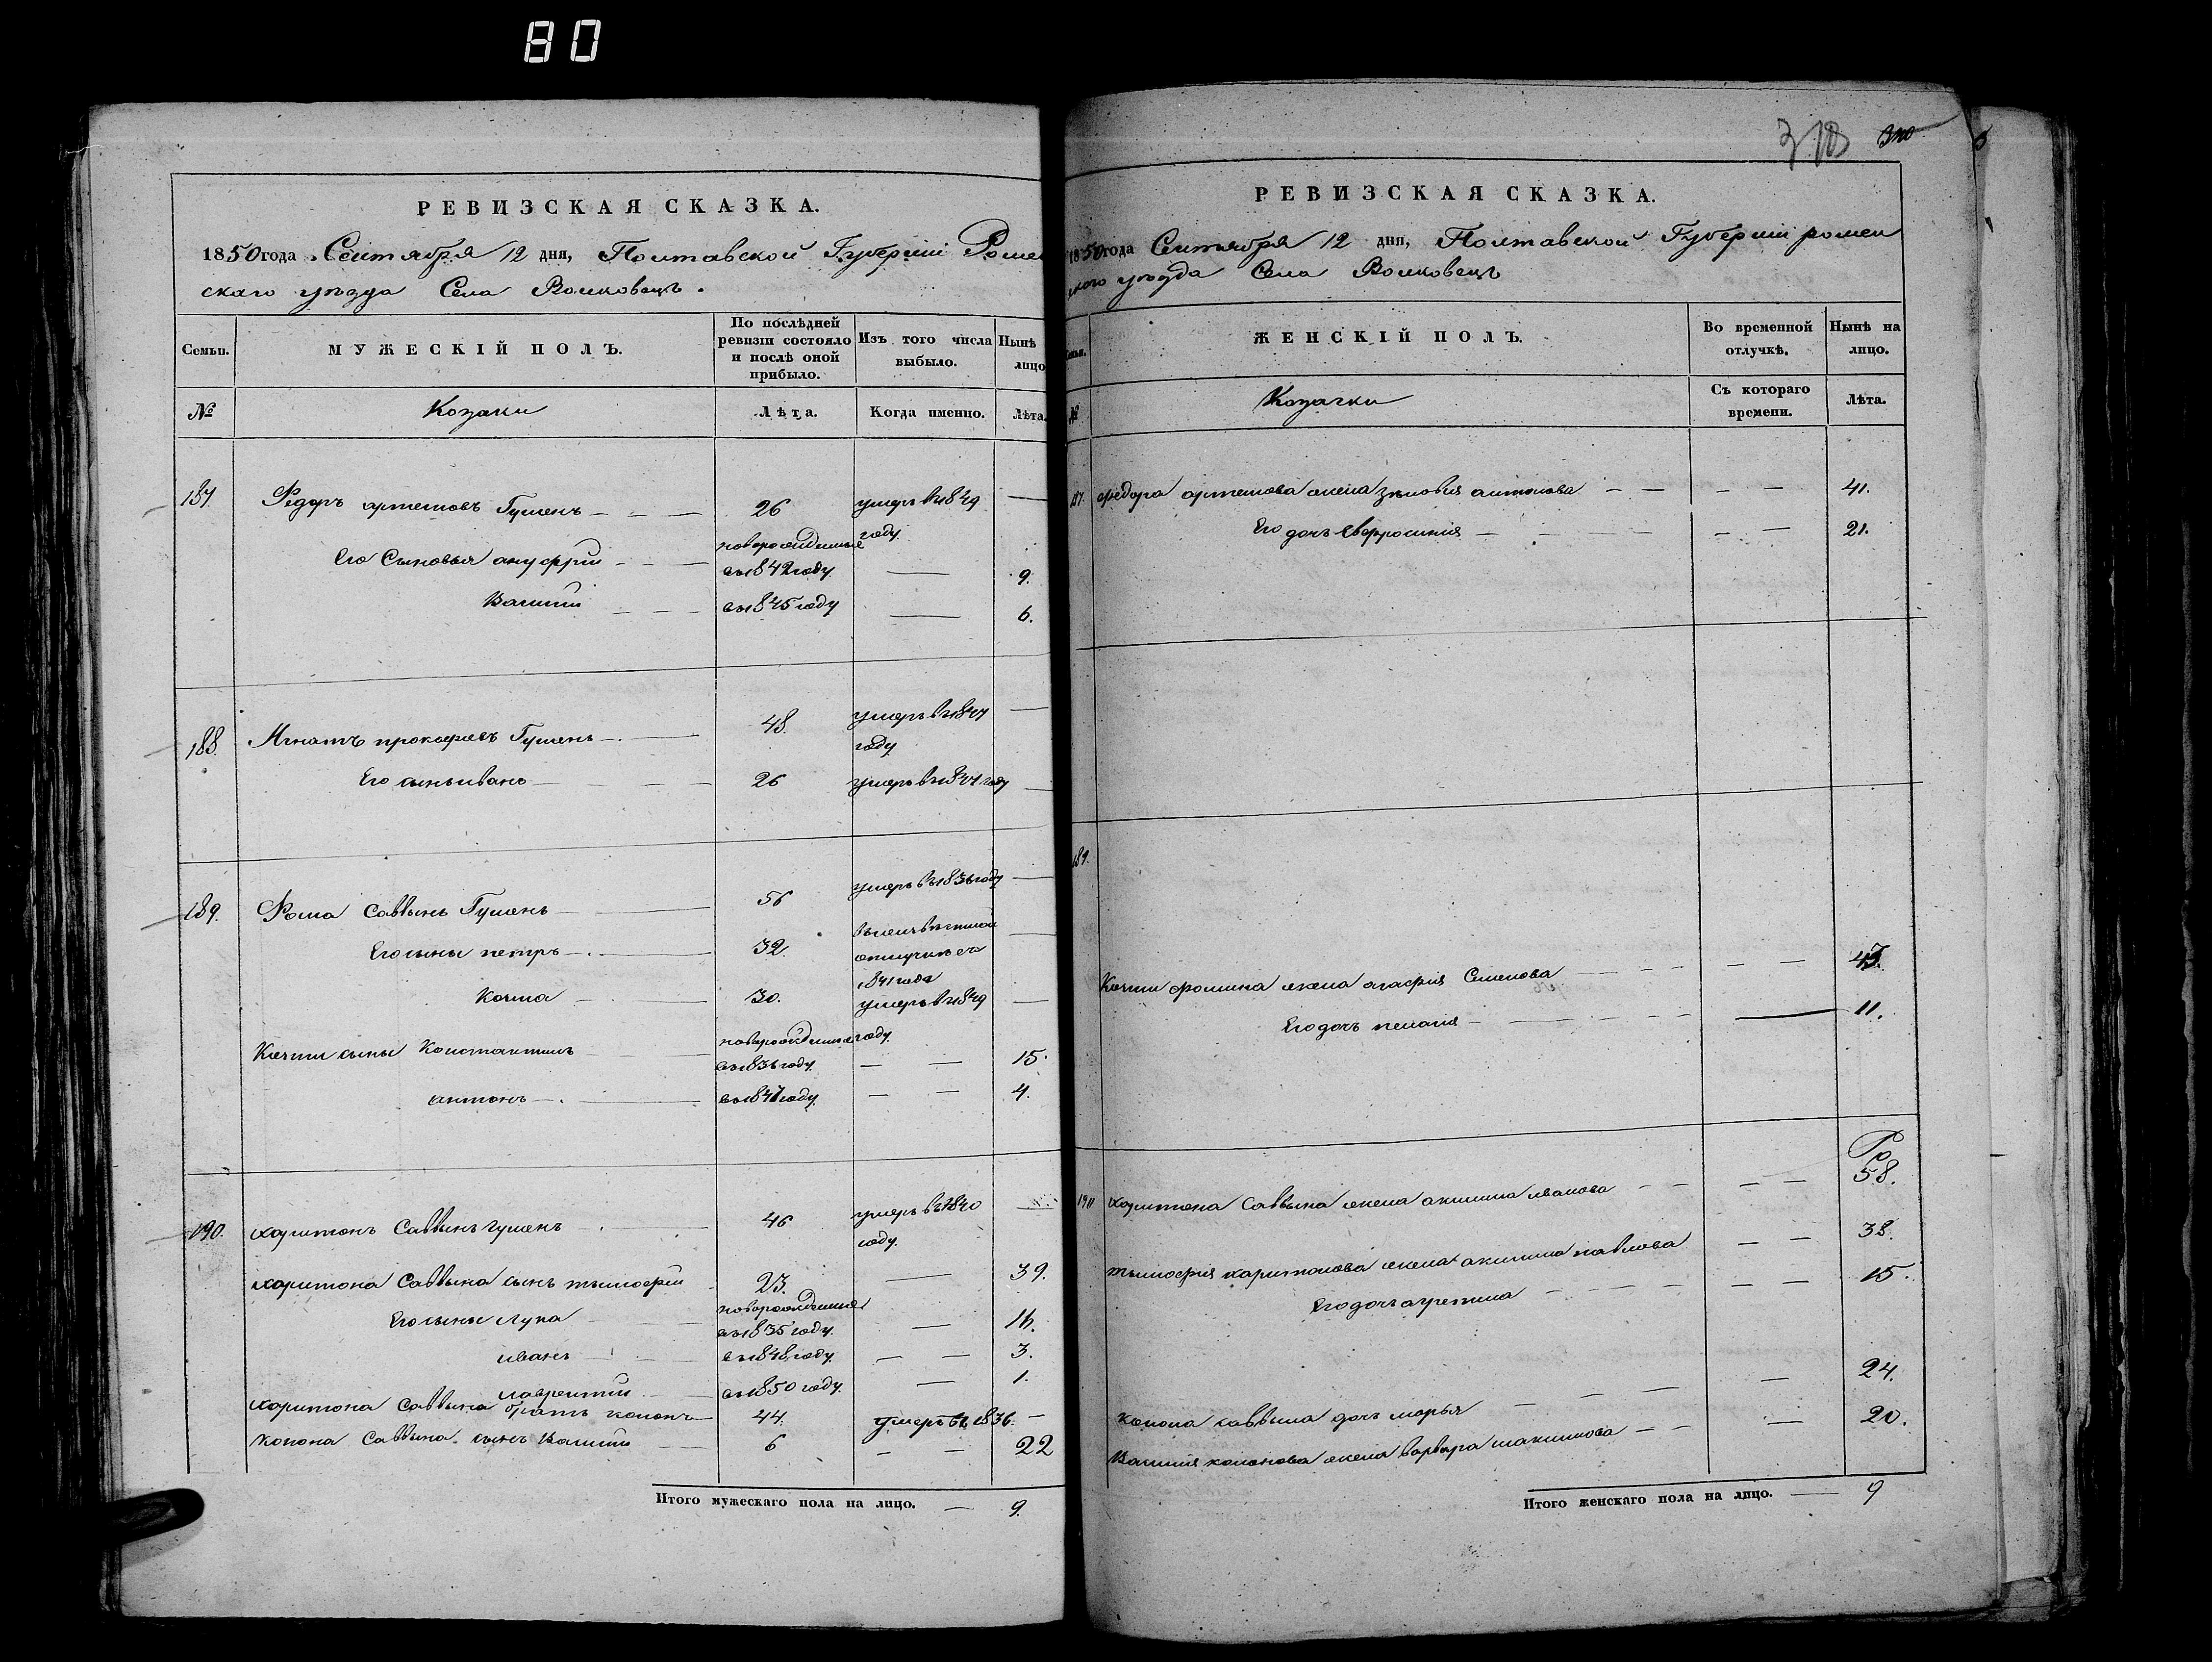 80
РЕВИЗСКАЯ СКАЗКА.
1850 года Сентября 12 дня, Полтавской Губерніи Ромен
скаго уѣзда Села Волковецъ.
Семьи.
МУЖЕСКІЙ ПОЛЪ.
По послѣдней ревизіи состояло и послѣ оной прибыло.
Изъ того числа выбыло.
Нынѣ лицо
№
Козаки
Лѣта.
Когда именно.
Лѣта.
187 Федоръ артемовъ Гуменъ 26 умеръ въ 1849 году
Его Сыновьяануфрій новорожденные въ 1842 году 9.
Василій въ 1845 году 6.
188 Игнатъ прокофьевъ Гуменъ 48. умеръ въ 1847 году
Его сынъ иванъ 26 умеръ въ 1847 году
189. Фома Саввинъ Гуменъ 56 умеръ въ 1836 году
Его сыны петръ 32. въ неизвѣстной отлучкѣ съ 1841 года
Козма 30. умеръ въ 1849 году
Козми сыны Константинъ новорожденные въ 1836 году 15.
антонъ въ 1847 году 4.
190. харитонъ Саввинъ гуменъ 46 умеръ въ 1840 году.
харитона Саввина сынъ тимофей 23. 39.
Его сыны Лука новорожденные въ 1835 году. 16.
иванъ въ 1848 году 3.
лаврентій въ 1850 году 1.
харитона Саввина братъ кононъ 44. умеръ въ 1836.
Конона Саввина сынъ Василій 6 22
Итого мужескаго пола на лицо. 9.
318
320
РЕВИЗСКАЯ СКАЗКА.
1850 года Сентября 12 дня, Полтавской Губерніи ромен
ского уѣзда Села Волковецъ
Семьи.
ЖЕНСКІЙ ПОЛЪ.
Во временной отлучкѣ.
Нынѣ на лицо.
№
Козачки
Съ котораго времени.
Лѣта.
187. федора артемова жена зѣновія антонова 41.
Его дочь Евфросинія 21.
189.
Козми фомина жена агафія Семенова 43.
Его дочь пелагія 11.
190 харитона Саввина жена акилина иванова 58.
тимофея харитонова жена акилина павлова 38.
Его дочь агрепина 15.
конона саввина дочь марья 24.
Василія кононова жена варвара максимова 20.
Итого женскаго пола на лицо. 9